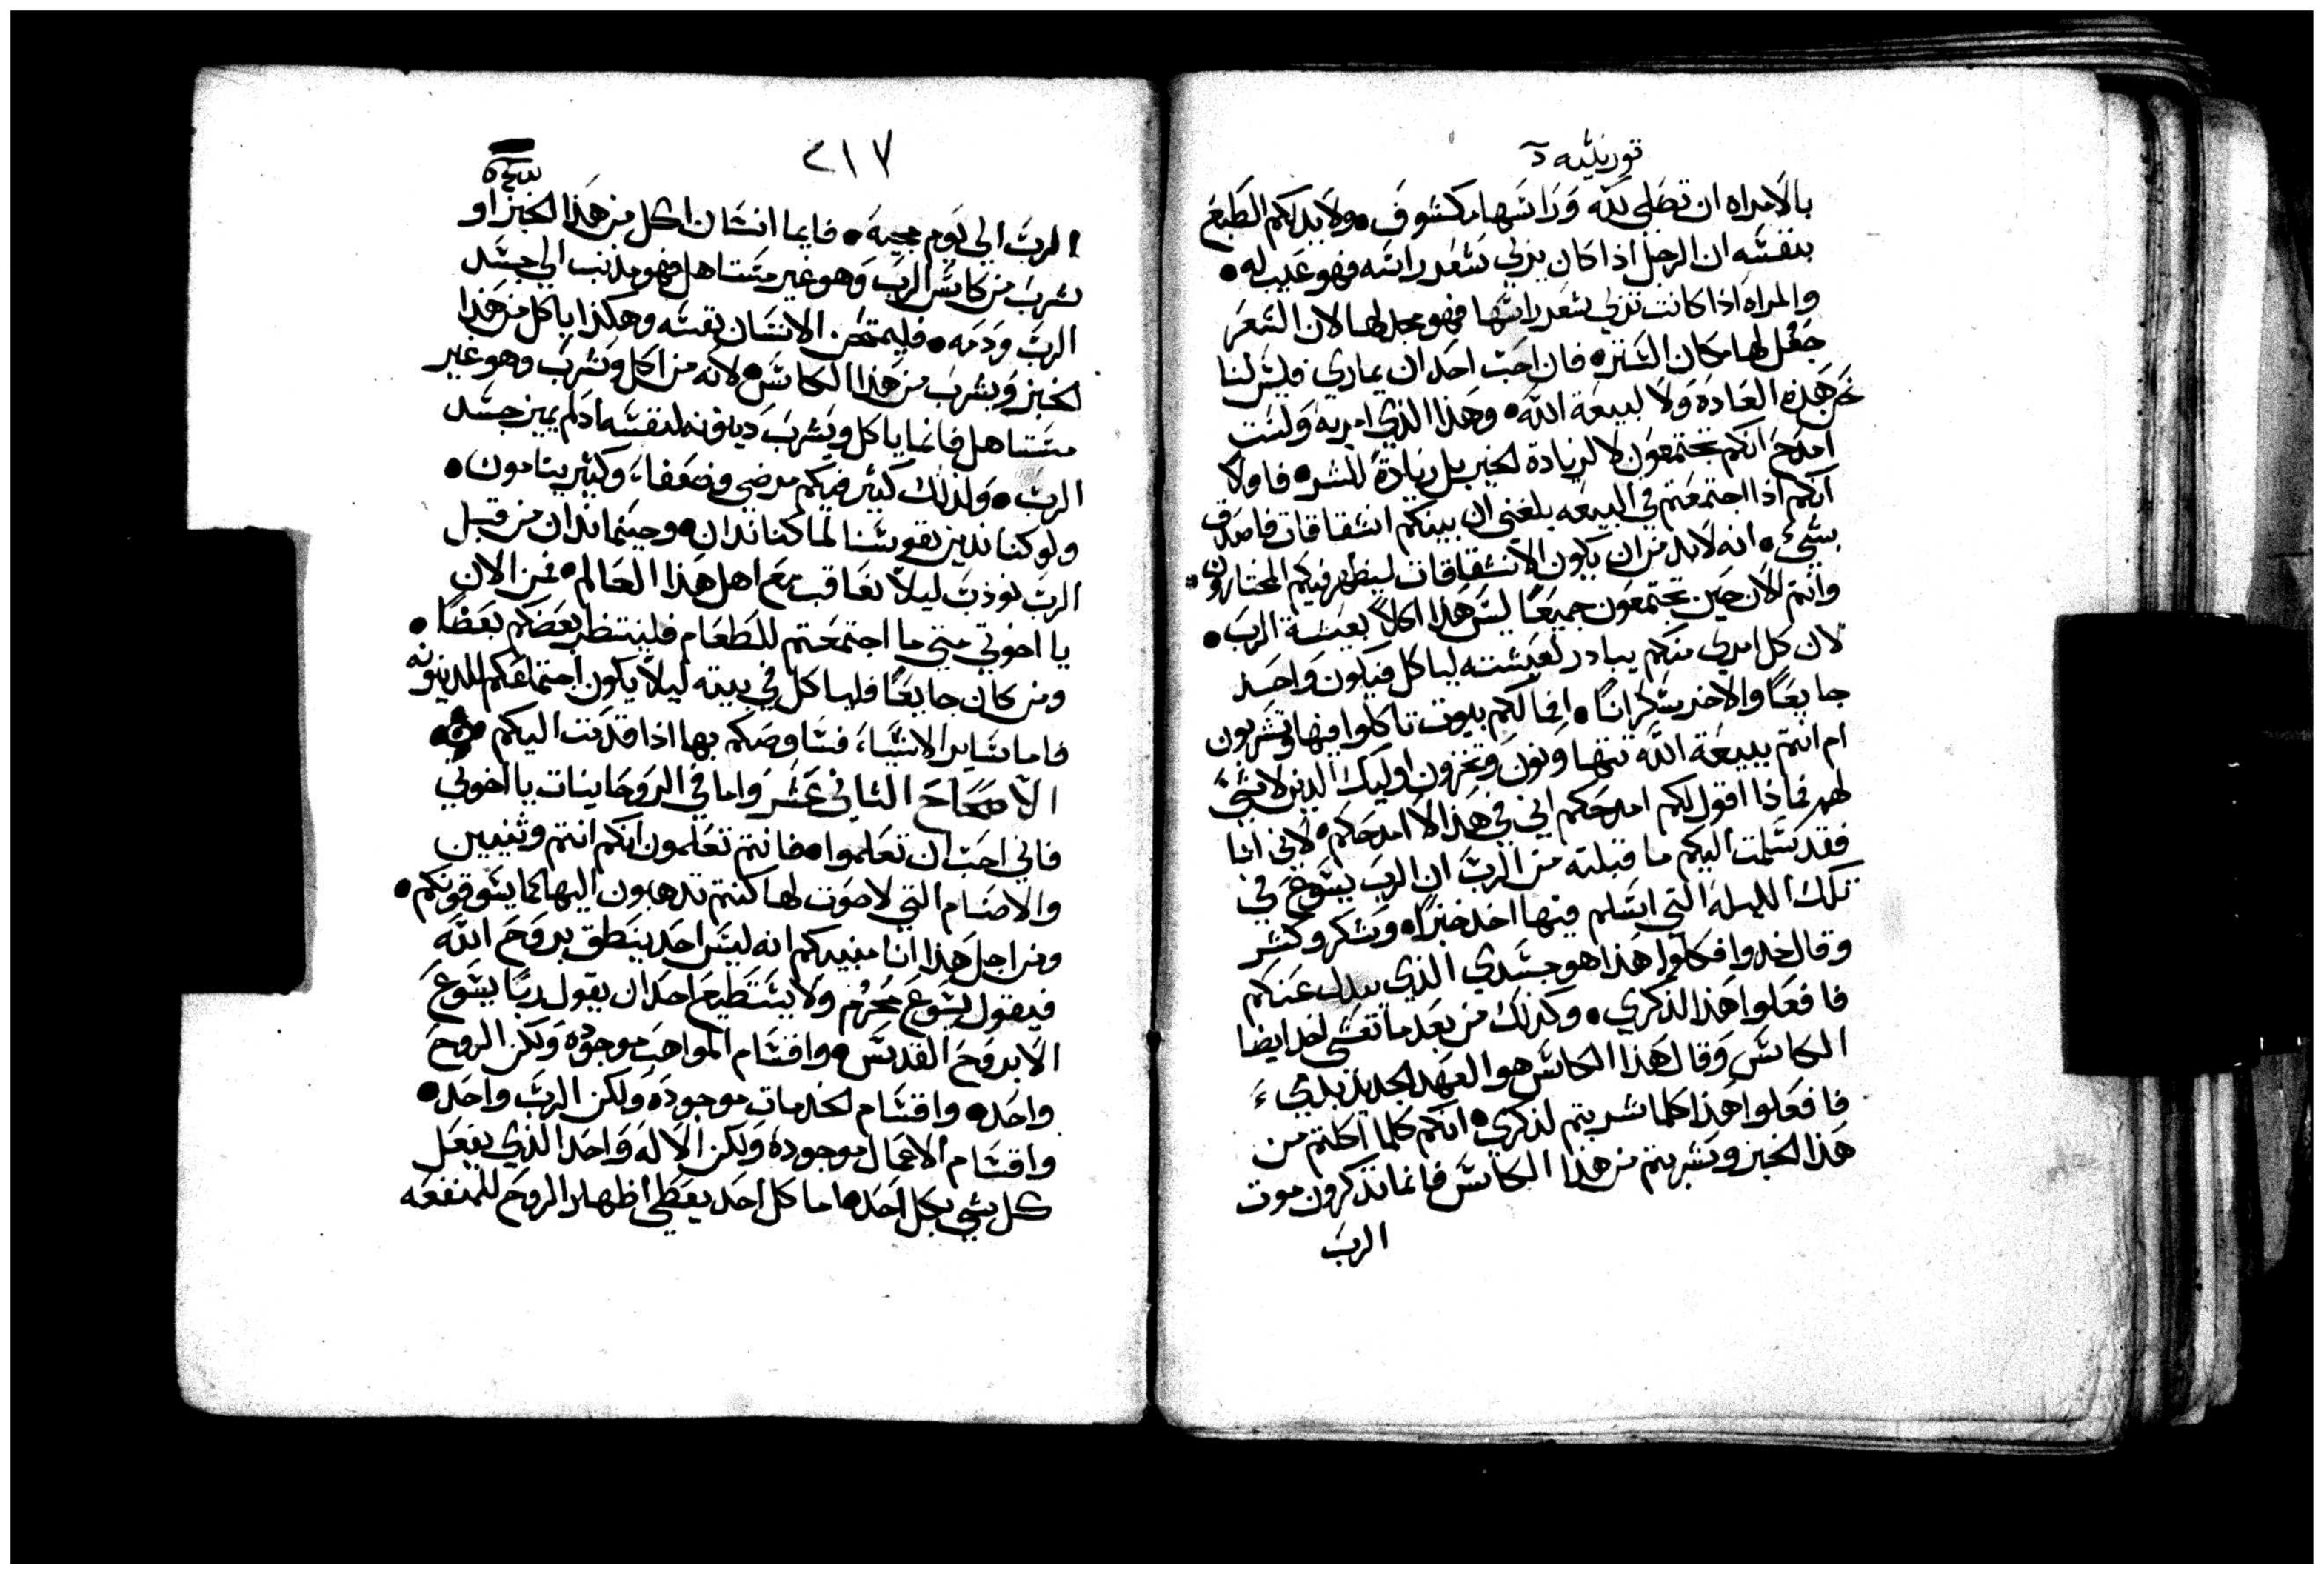 قورنثيه
بالامراه ان تصلي لله وراسها مكشوف • ولا يدلكم الطبع
بنفسه ان الرجل اذا كان يربي شعر راسه فهو عيب له •
والمراه اذا كانت تربي شعر راسها فهو مجد لها لان الشعر
جعل لها مكان الستره • فان احب احد ان يماري فليس لنا
نحن هذه العاده ولا لبيعة الله • وهذا الذي امر به ولست
امدح انكم تجتمعون لا لزيادة الخير بل زيادة للشر • فاولا
انكم اذا اجتمعتم في البيعه بلغني ان بينكم انشقاقات فاصدق
بشيء • انه لابد من ان يكون الانشقاقات ليظهر فيكم المختارون
وانتم الان حين تجتمعون جميعا ليس هذا اكلا بعيشة الرب •
لان كل امري منكم يبادر لعيشته لياكل فيكون واحد
جايعا والاخر سكرانا • افما لكم بيوت تاكلوا فيها وتشربون
ام انتم ببيعة الله تتهاونون وتخزون اوليك الذين لا شيء
لهم فماذا اقول لكم امدحكم اني في هذا لا امدحكم • لاني انا
فقد سلمت اليكم ما قبلته من الرب ان الرب يسوع في
تلك الليله التي اسلم فيها اخذ خبزا • وشكر وكسر
وقال خدوا فكلوا هذا هو جسدي الذي يبدل عنكم
فافعلوا هذا لذكري • وكذلك من بعد ما تعشى اخذ ايضا
الكاس وقال هذا الكاس هو العهد الجديد بدمي
فافعلوا هذا كلما شربتم لذكري • انكم كلما اكلتم من
هذا الخبز وشربتم من هذا الكاس فانما تذكرون موت
الرب
٢١٧
الرب الي يوم مجيه • فايما انسان اكل من هذا الخبز او
شرب من كاس الرب وهو غير مستاهل فهو مذنب الي جسد
الرب ودمه • فليمتحن الانسان نفسه وهكذا ياكل من هذا
الخبز ويشرب من هذا الكاس • لانه من اكل وشرب وهو غير
مستاهل فانما ياكل ويشرب دينونه لنفسه اذ لم يميز جسد
الرب • ولذلك كثير فيكم مرضي وضعفا، وكثير ينامون •
ولو كنا ندين نفوسنا لما كنا ندان • وحينما ندان من قبل
الرب نودب ليلا نعاقب مع اهل هذا العالم • نحن الان
يا اخوتي متي ما اجتمعتم للطعام فلينتظر بعضكم بعضا •
ومن كان جايعا فلياكل في بيته ليلا يكون اجتماعكم للدينونه
فاما ساير الاشياء، فساوصكم بها اذا قدمت اليكم
الاصحاح الثاني عشر واما في الروحانيات يا اخوتي
فاني احب ان تعلموا • فانتم تعلمون انكم انتم وثنيين
والاصنام التي لا صوت لها كنتم تدهبون اليها كما يسوقونكم •
ومن اجل هذا انا مبنيكم انه ليس احد ينطق بروح الله
فيقول يسوع محرم ولا يستطيع احد ان يقول ربا يسوع
الا بروح القدس • واقسام المواهب موجوده ولكن الروح
واحد • واقسام الخدمات موجوده ولكن الرب واحد •
واقسام الاعمال موجوده ولكن الاله واحد الذي يفعل
كل شي بكل احد • اما كل احد يعطي اظهار الروح للمنفعه